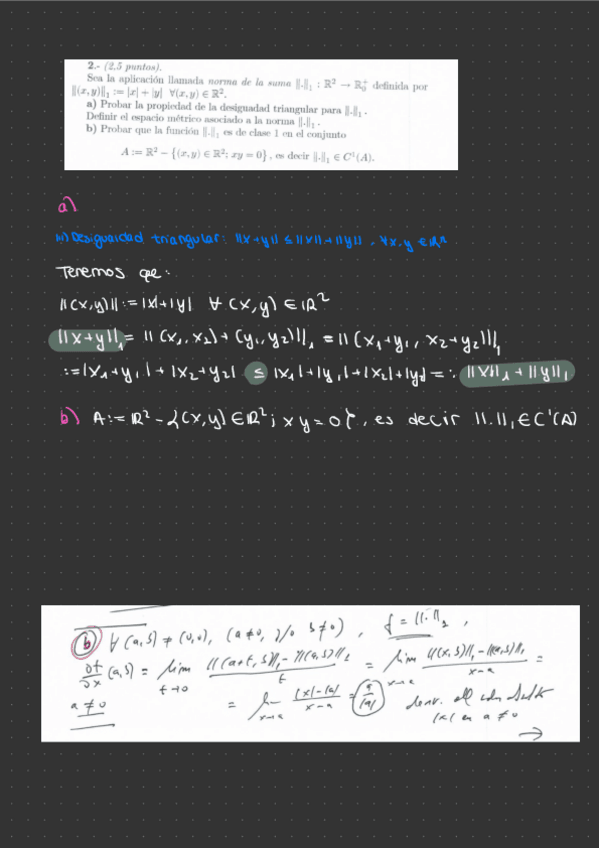 2.- (2,5 puntos).
Sea la aplicación llamada norma de la suma ‖.‖₁ : ℝ² → ℝ₀⁺ definida por
‖(x, y)‖₁ := |x| + |y| ∀(x, y) ∈ ℝ².
a) Probar la propiedad de la desiguadad triangular para ‖.‖₁ .
Definir el espacio métrico asociado a la norma ‖.‖₁ .
b) Probar que la función ‖.‖₁ es de clase 1 en el conjunto
A := ℝ² − {(x, y) ∈ ℝ²; xy = 0} , es decir ‖.‖₁ ∈ C¹(A).
a)
Desigualdad triangular: ‖x+y‖ ≤ ‖x‖+‖y‖ , ∀x,y ∈ ℝⁿ
Tenemos que:
‖(x,y)‖ := |x|+|y| ∀ (x,y) ∈ ℝ²
‖x+y‖₁ = ‖(x₁,x₂)+(y₁,y₂)‖₁ = ‖(x₁+y₁, x₂+y₂)‖₁
:= |x₁+y₁|+|x₂+y₂| ≤ |x₁|+|y₁|+|x₂|+|y₂| =: ‖x‖₁+‖y‖₁
b) A := ℝ² − {(x,y) ∈ ℝ²; xy=0}, es decir ‖.‖₁ ∈ C¹(A)
b) ∀ (a,b) ≠ (0,0), (a≠0, y/o b≠0), f = ‖.‖₁ ,
∂f/∂x (a,b) = lim t→0 (‖(a+t, b)‖₁ − ‖(a,b)‖₁)/t = lim x→a (‖(x,b)‖₁ − ‖(a,b)‖₁)/(x−a) =
a≠0 = lim x→a (|x|−|a|)/(x−a) = a/|a| deriv. del
|x| en a≠0
→